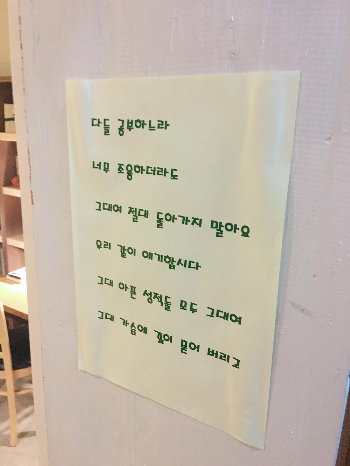 다들 공부하느라
너무 조용하더라도
그대여 절대 돌아가지 말아요
우리 같이 얘기합시다
그대 아픈 성적들 모두 그대여
그대 가슴에 깊이 묻어 버리고